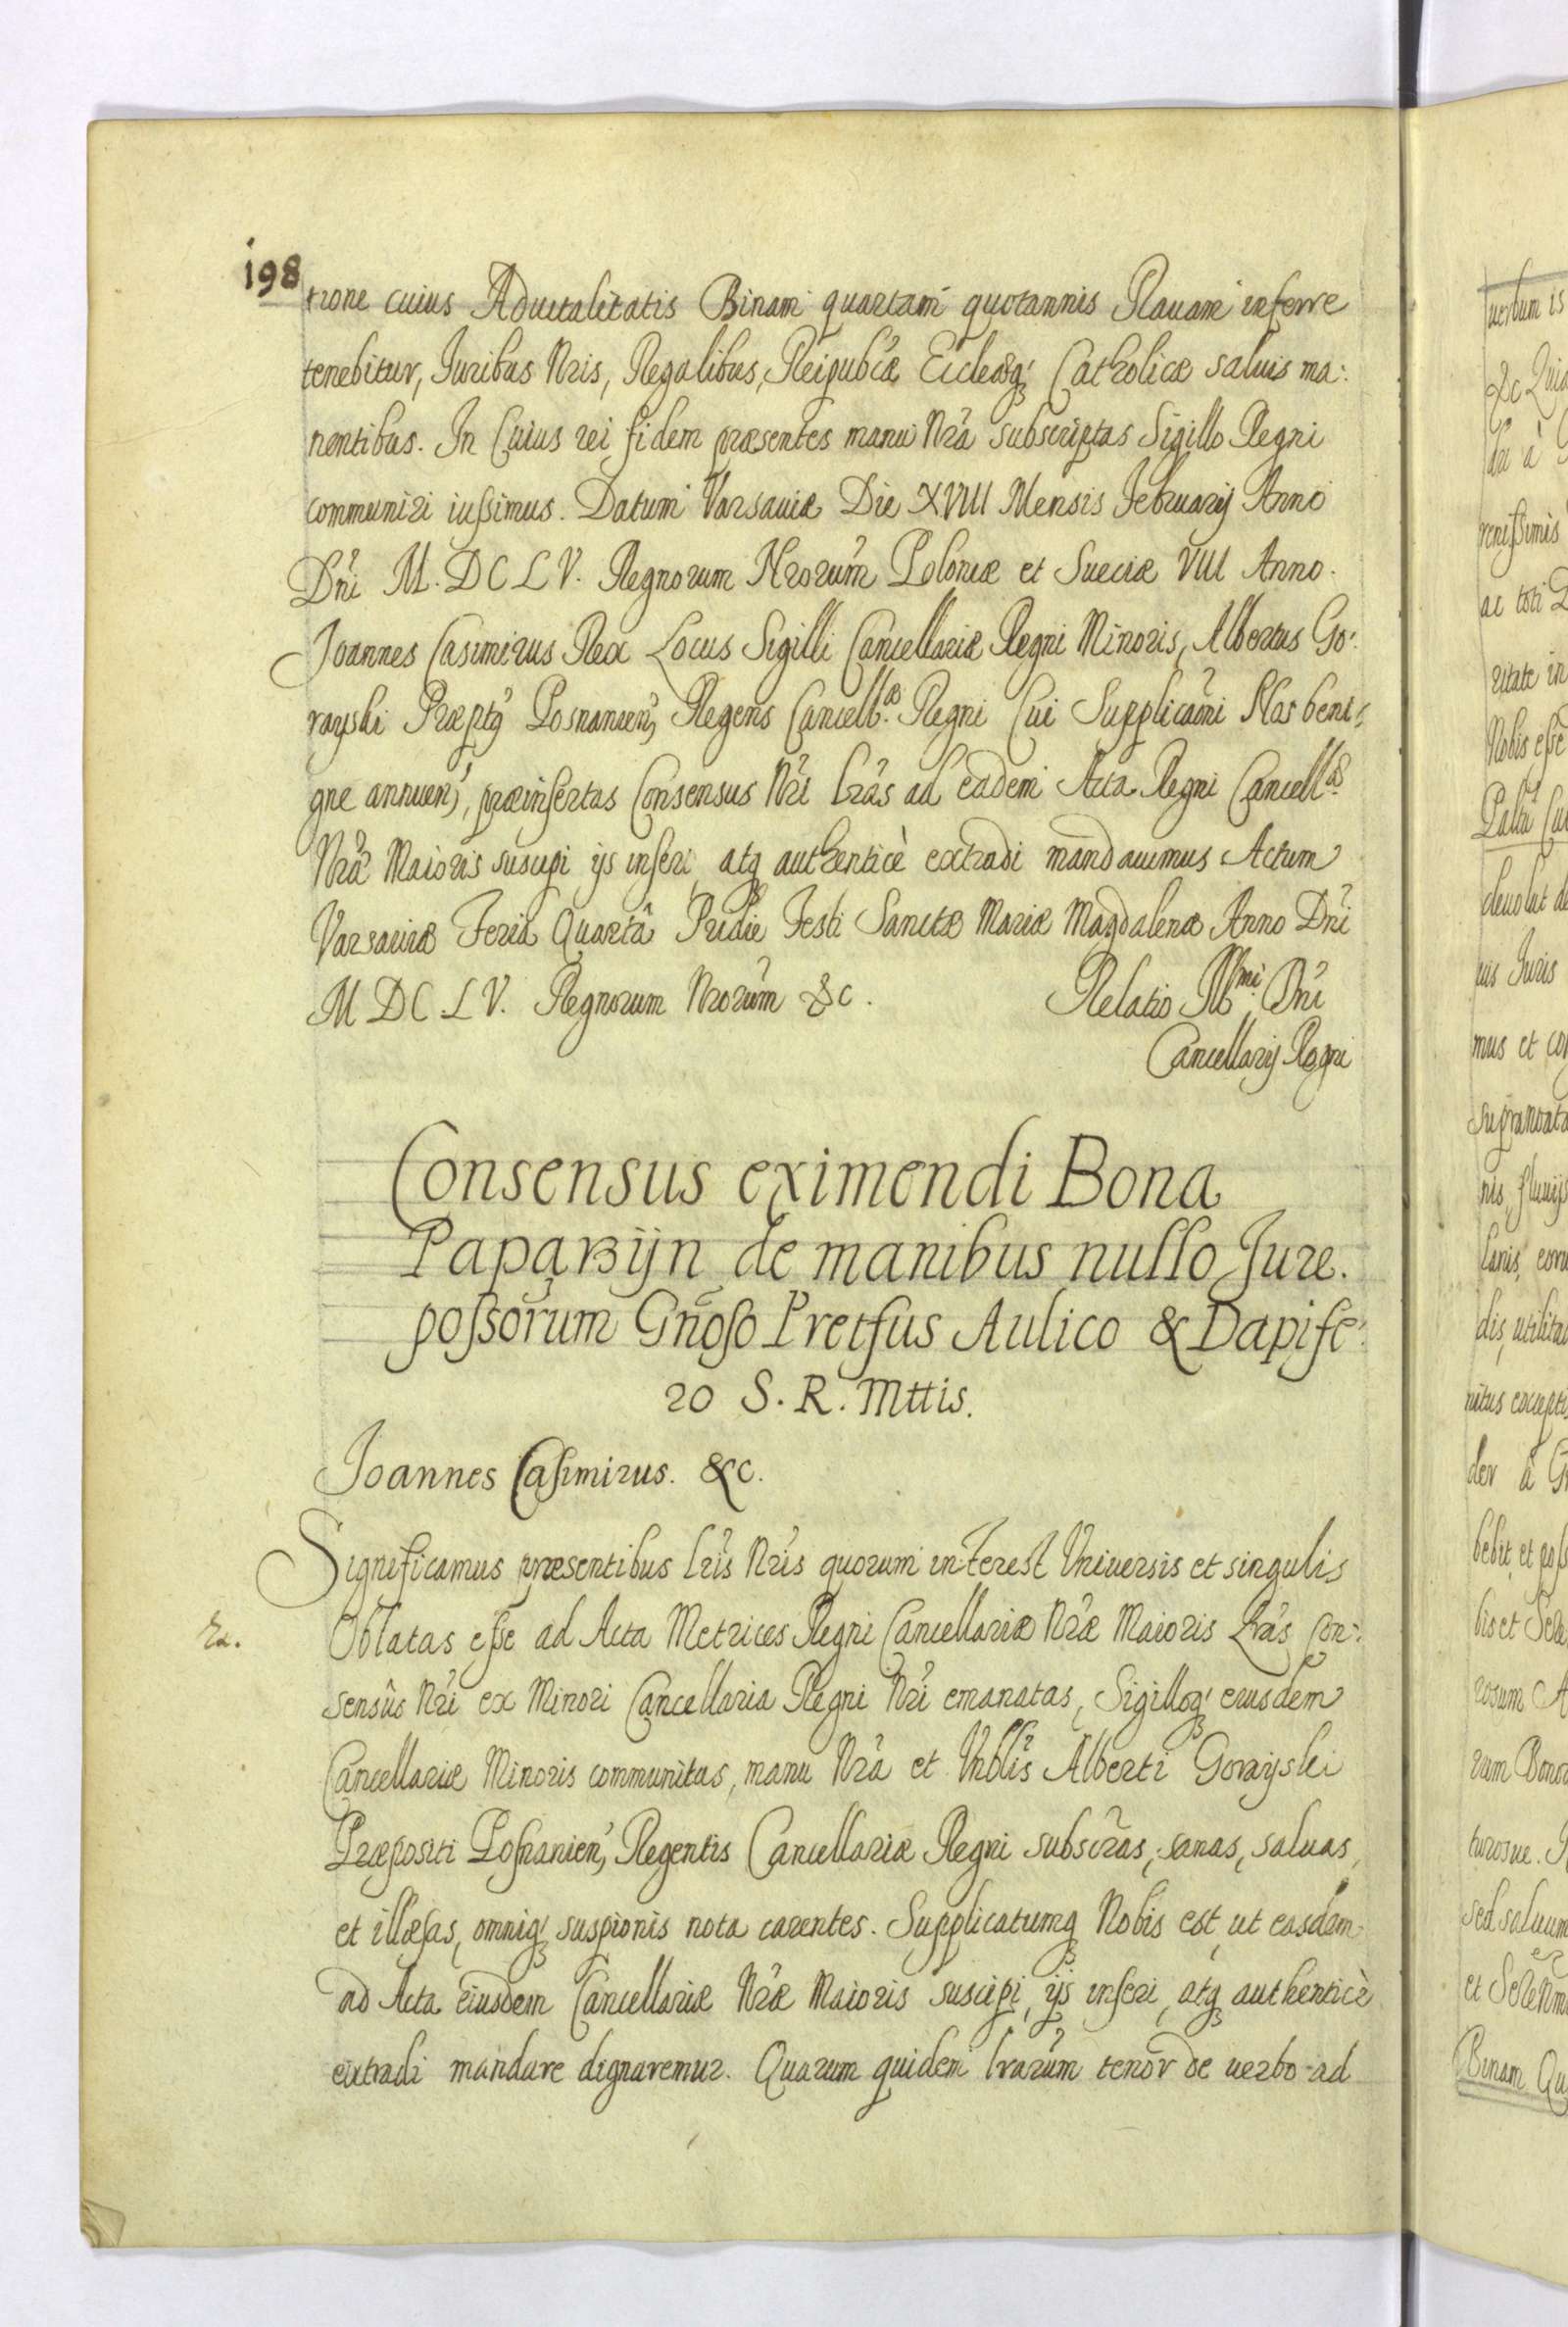 198
tione cuius Aduitalitatis Binam quartam quotannis Rauam inferre
tenebitur, Iuribus Nris, Regalibus, Reipubcæ Eccleæq́ Catholicæ saluis ma:
nentibus. In Cuius rei fidem præsentes manu Nrã subscriptas Sigillo Regni
communiri iussimus. Datum Varsauiæ Die XVIII Mensis Februarij Anno
Dni M. DC LV. Regnorum Nrorum Poloniæ et Sueciæ VIII Anno.
Joannes Casimirus Rex Locus Sigilli Cancellariæ Regni Minoris, Albertus Go:
rayski Præptq Posnanien, Regens Cancellæ Regni Cui Supplicãoni Nos beni:
gne annuen, præinsertas Consensus Nri Lrãs ad eadem Acta Regni Cancellæ
Nræ Maioris suscipi ijs inseri atq authenticè extradi mandauimus Actum
Varsauiæ Feria Quartâ Pridie Festi Sanctæ Mariæ Magdalenæ Anno Dni
M DC LV. Regnorum Nrorum &c. Relatio Illmi Dni
Cancellarij Regni
Consensus eximendi Bona
de manibus nullo Jure.
possorum Gnoso Pretfus Aulico & Dapife:
ro S. R. Mttis.
Joannes Casimirus. &c.
Significamus præsentibus Lris Nris quorum interest Vniuersis et singulis
Oblatas esse ad Acta Metrices Regni Cancellariæ Nræ Maioris Lrãs Con:
sensûs Nri ex Minori Cancellaria Regni Nri emanatas, Sigilloq́ eiusdem
Cancellariæ Minoris communitas, manu Nrã et Vnblis Alberti Gorayski
Præpositi Posnanien, Regentis Cancellariæ Regni subscras, sanas, saluas,
et illæsas, omniq́ suspionis nota carentes. Supplicatumq Nobis est, ut easdem
ad Acta eiusdem Cancellariæ Nræ Maioris suscipi, ijs inseri, atq authenticè
extradi mandare dignaremur. Quarum quidem lrarum tenor de uerbo ad